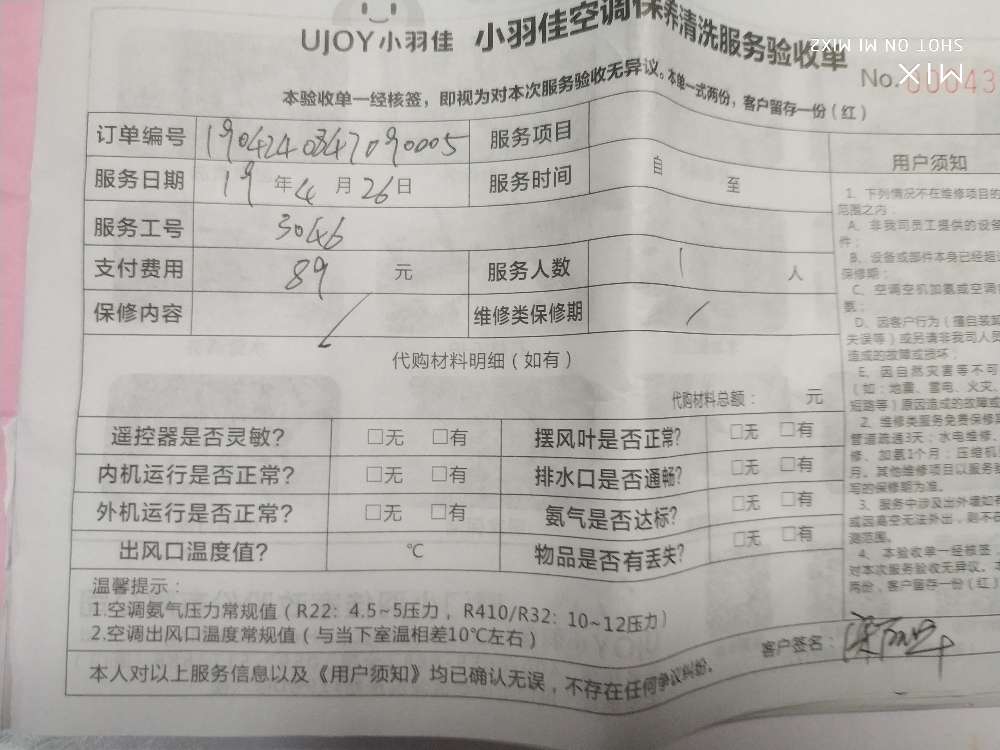 UJOY小羽佳 小羽佳空调保养清洗服务验收单
SHOT ON MI MIX2
MIX
No. 00043
本验收单一经核签，即视为对本次服务验收无异议。本单一式两份，客户留存一份（红）
订单编号 190424034709005 服务项目
服务日期 19年4月26日 服务时间 自 至
服务工号 3046
支付费用 89 元 服务人数 1 人
保修内容 / 维修类保修期 /
代购材料明细（如有）
代购材料总额： 元
遥控器是否灵敏？ □无 □有 摆风叶是否正常？ □无 □有
内机运行是否正常？ □无 □有 排水口是否通畅？ □无 □有
外机运行是否正常？ □无 □有 氨气是否达标？ □无 □有
出风口温度值？ ℃ 物品是否有丢失？ □无 □有
温馨提示：
1.空调氨气压力常规值（R22：4.5~5压力，R410/R32：10~12压力）
2.空调出风口温度常规值（与当下室温相差10℃左右）
客户签名：
本人对以上服务信息以及《用户须知》均已确认无误，不存在任何争议纠纷。
用户须知
1、下列情况不在维修项目的
范围之内：
A、非我司员工提供的设备
件；
B、设备或部件本身已经超过
保修期；
C、空调空机加氨或空调
氨；
D、因客户行为（擅自装卸
失误等）或另请非我司人员
造成的故障或损坏；
E、因自然灾害等不可
（如：地震、雷电、火灾、
短路等）原因造成的故障或
2、维修类服务免费保修
管道疏通3天；水电维修、
修、加氨1个月；压缩机
月。其他维修项目以服务
写的保修期为准。
3、服务中涉及出外墙如
或因高空无法外出，则不在
测范围。
4、本验收单一经核签，
对本次服务验收无异议。本
两份，客户留存一份（红）